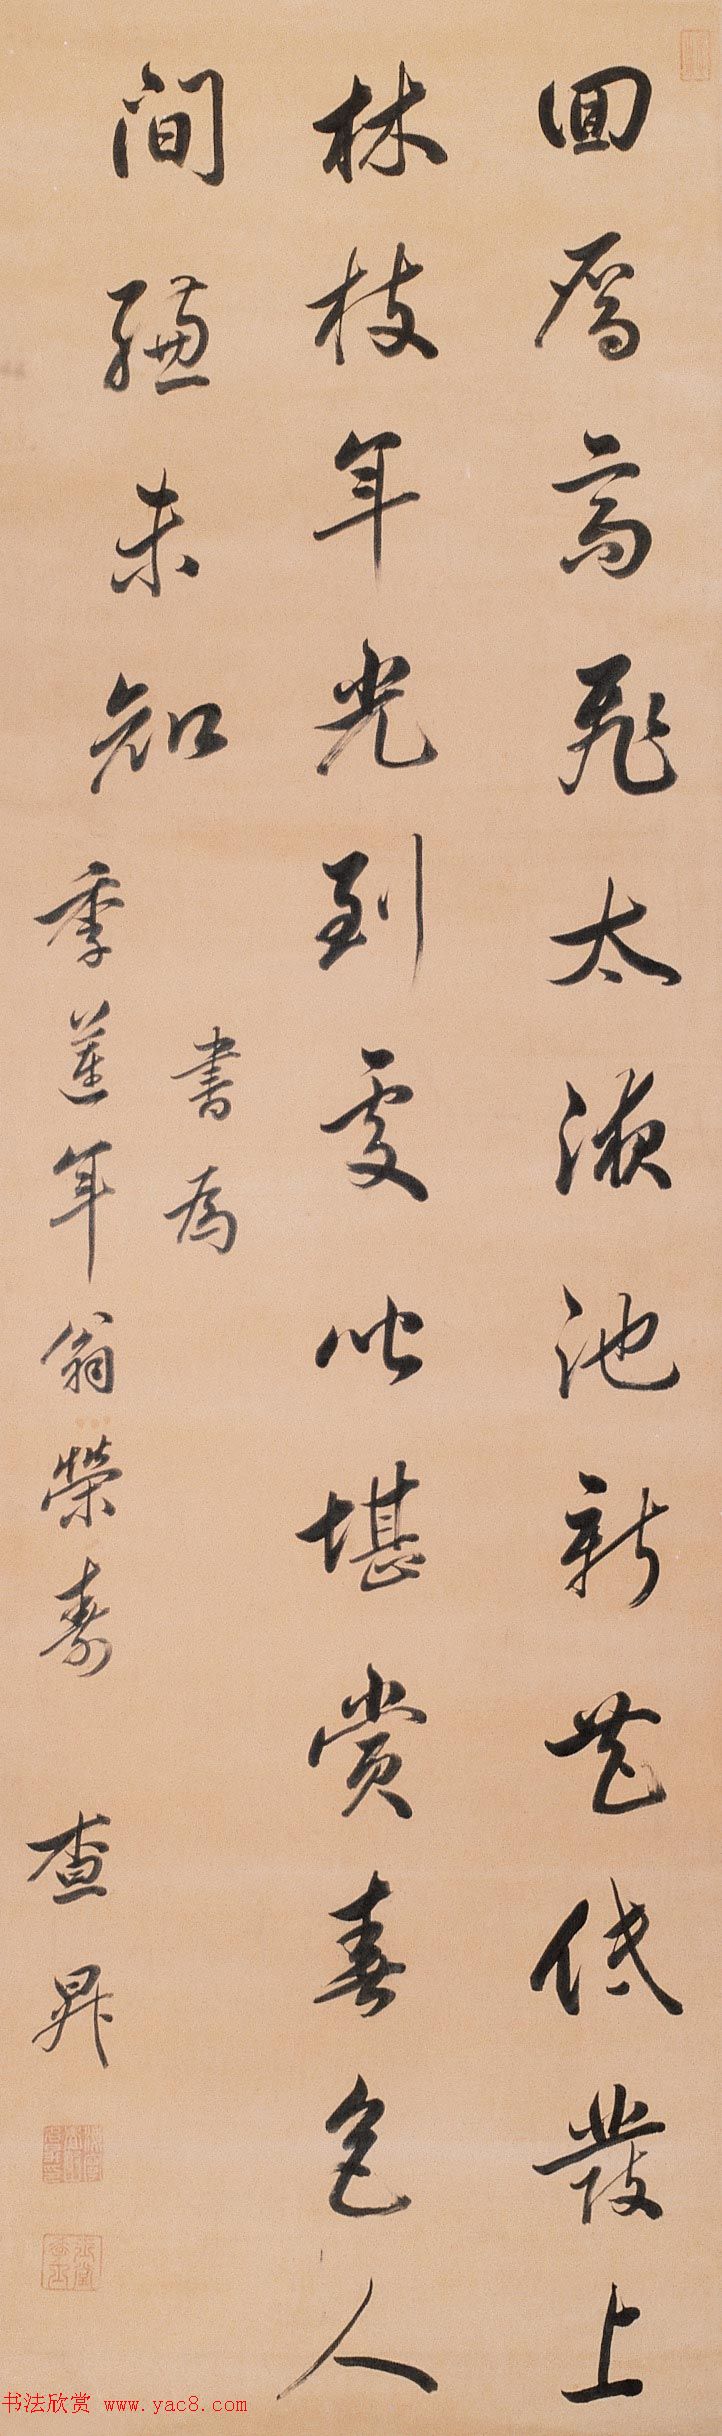 回鴈高飛太液池新花低發上
林枝年光到處皆堪賞春色人
間總未知
書為
季蓮年翁榮壽 查昇
书法欣赏 www.yac8.com